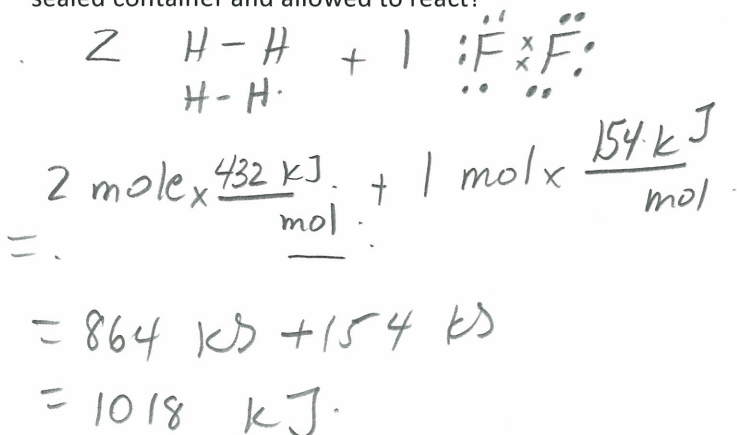 sealed container and allowed to react?
2 H-H + 1 :F××F:
H-H.
2 mole × 432 kJ/mol + 1 mol × 154 kJ/mol
=
= 864 kJ + 154 kJ
= 1018 kJ.